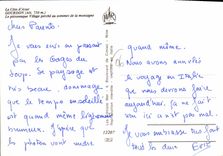 La Côte d'Azur
GOURDON (Alt. 758 m.)
Le pittoresque Village perché au sommet de la montagne
chers Parents.
Je vous écris en passant
par les Gorges du
Loup. Le paysage est
très beau. dommage
que le temps
est quand même
brumeux. J'espère que
les photos vont être
quand même.
Nous avons annulés
le voyage en Italie
que nous devions faire
aujourd'hui, ça ne fait
rien ici a n'est pas mal.
Je vous embrasse très fort
tous les deux